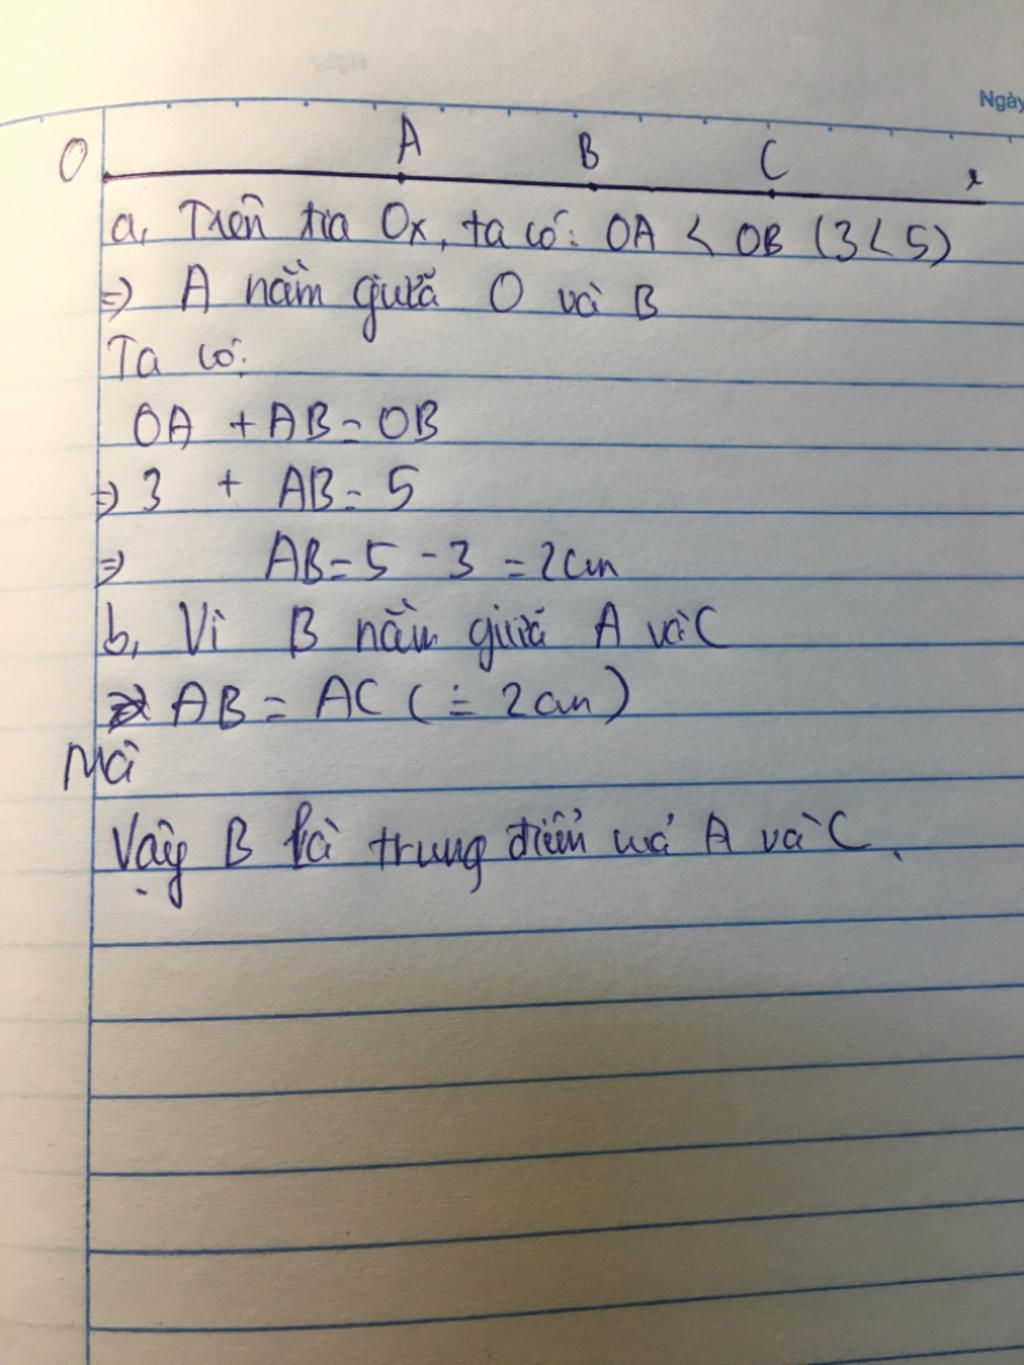 Ngày
O A B C x
a, Trên tia Ox, ta có: OA < OB (3<5)
=> A nằm giữa O và B
Ta có:
OA + AB = OB
=> 3 + AB = 5
=> AB = 5 - 3 = 2cm
b, Vì B nằm giữa A và C
=> AB = AC (= 2cm)
Mà
Vậy B là trung điểm của A và C.